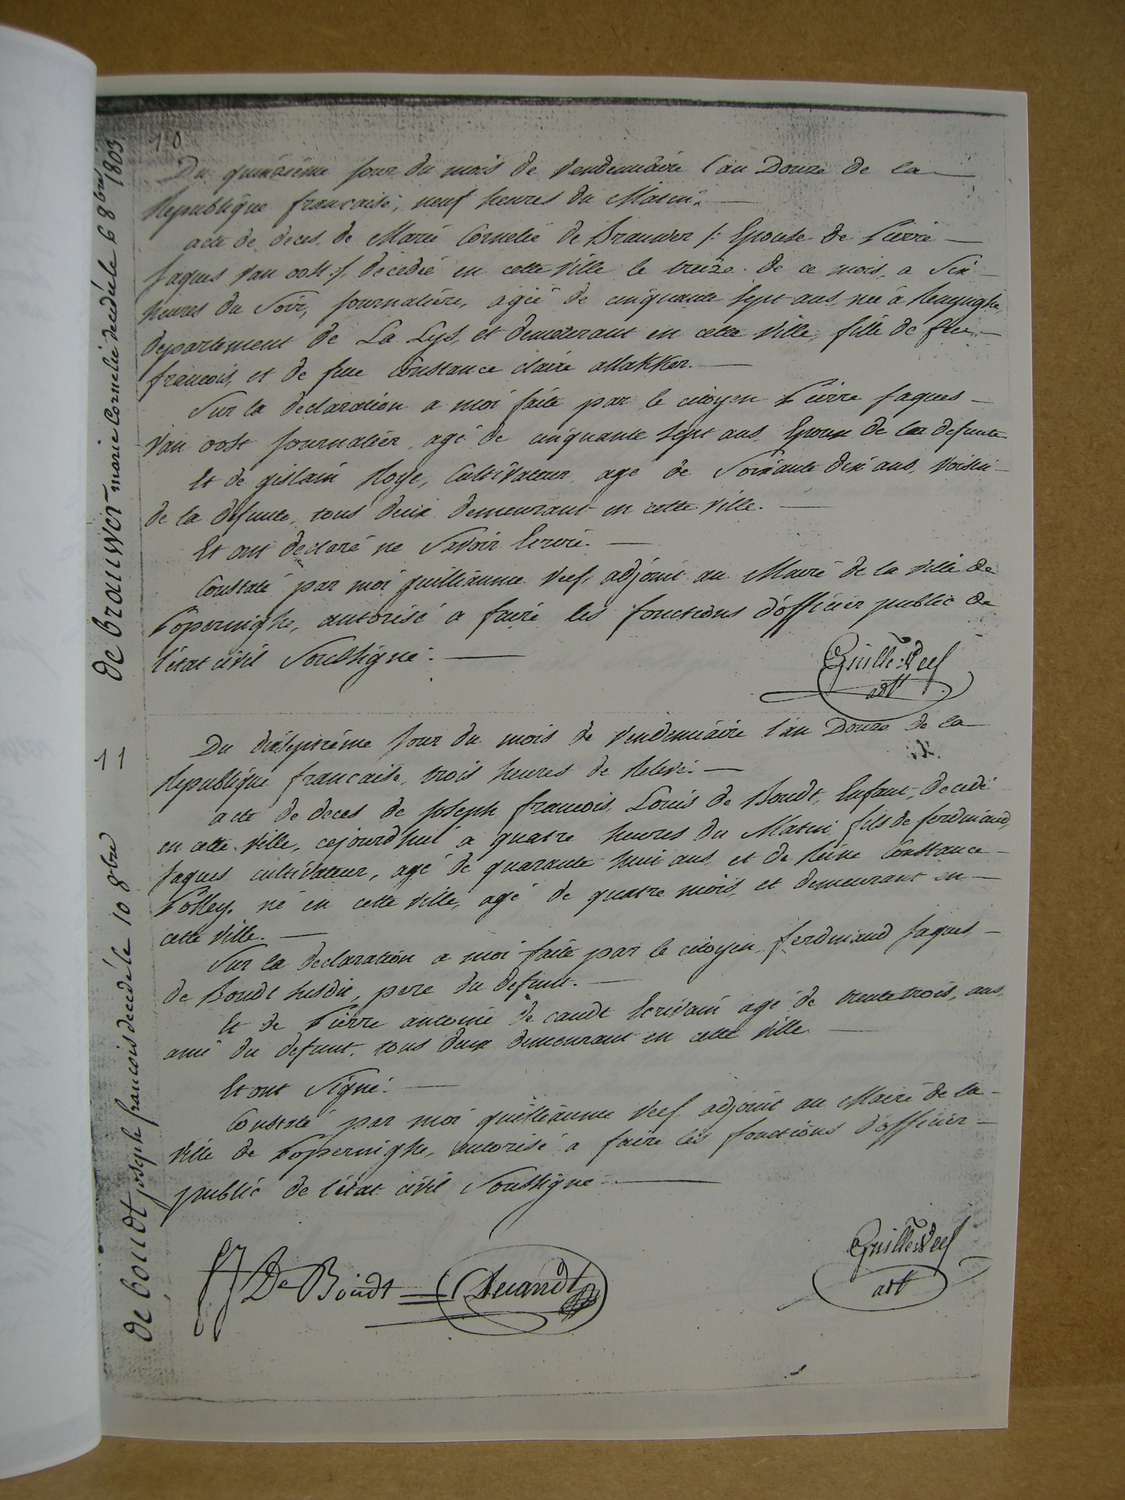 10
de brauwer marie Cornelie decédé le 6 8bre 1803
Du quinzième jour du mois de Vendemiaire l'an Douze de la
Republique francaise, neuf heures du Matin.
acte de deces de Marie Cornelie de Brauwer /: Epouse de Pierre
Jaques Van oost :/ décédié en cette Ville le treize de ce mois, a Six
heures du Soir, journalière, agée de cinquante Sept ans, née à
departement de La Lys, et demeurant en cette Ville, fille de feu
francois, et de feue Constance claire
Sur la declaration a moi faite par le citoyen Pierre Jaques
Van oost journalier, agé de cinquante Sept ans, Epoux de la defunte
Et de gislain Hoye, Cultivateur, agé de Soixante dix ans, Voisin
de la defunte, tous deux demeurant en cette Ville.
Et ont declaré ne Savoir Ecrire.
Constaté par moi guilliaume Veef, adjoint au Maire de la Ville de
Poperinghe, autorisé a faire les fonctions d'officier public de
l'état civil Soussigné.
Guille: Veef
adt
11
de boudt joseph francois decedé le 10 8bre
Du dixseptième jour du mois de Vendemiaire l'an Douze de la
Republique francaise, trois heures de Relevé.
acte de deces de Joseph francois Louis de Boudt, Enfant, decédé
en cette Ville, cejourd'hui a quatre heures du Matin, fils de ferdinand
Jaques cultivateur, agé de quarante huit ans, et de Reine Constance
né en cette Ville, agé de quatre mois, et demeurant en
cette Ville.
Sur la declaration a moi faite par le citoyen ferdinand Jaques
de Boudt Susdit, pere du defunt.
Et de Pierre antoine de candt Ecrivain agé de trente trois ans,
ami du defunt, tous deux demeurant en cette Ville
Et ont Signé.
Constaté par moi guilliaume Veef adjoint au Maire de la
Ville de Poperinghe, autorisé a faire les fonctions d'officier
public de l'état civil Soussigné
fJ De Boudt
Decandt
Guille: Veef
adt